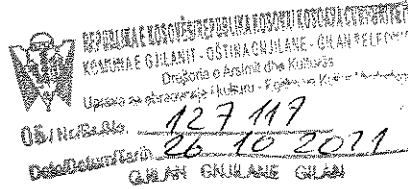 REPUBLIKA E KOSOVËS/REPUBLIKA KOSOVA/KOSOVA CUMHURİYETİ
KOMUNA E GJILANIT - OPŠTINA GNJILANE - GİLAN
Drejtoria e Arsimit dhe Kulturës
Uprava za obrazovanje i kulturu
05/Nr/Br./No. 127 117
Data/Datum/Tarih 26 10 2021
GJILAN GNJILANE GİLAN